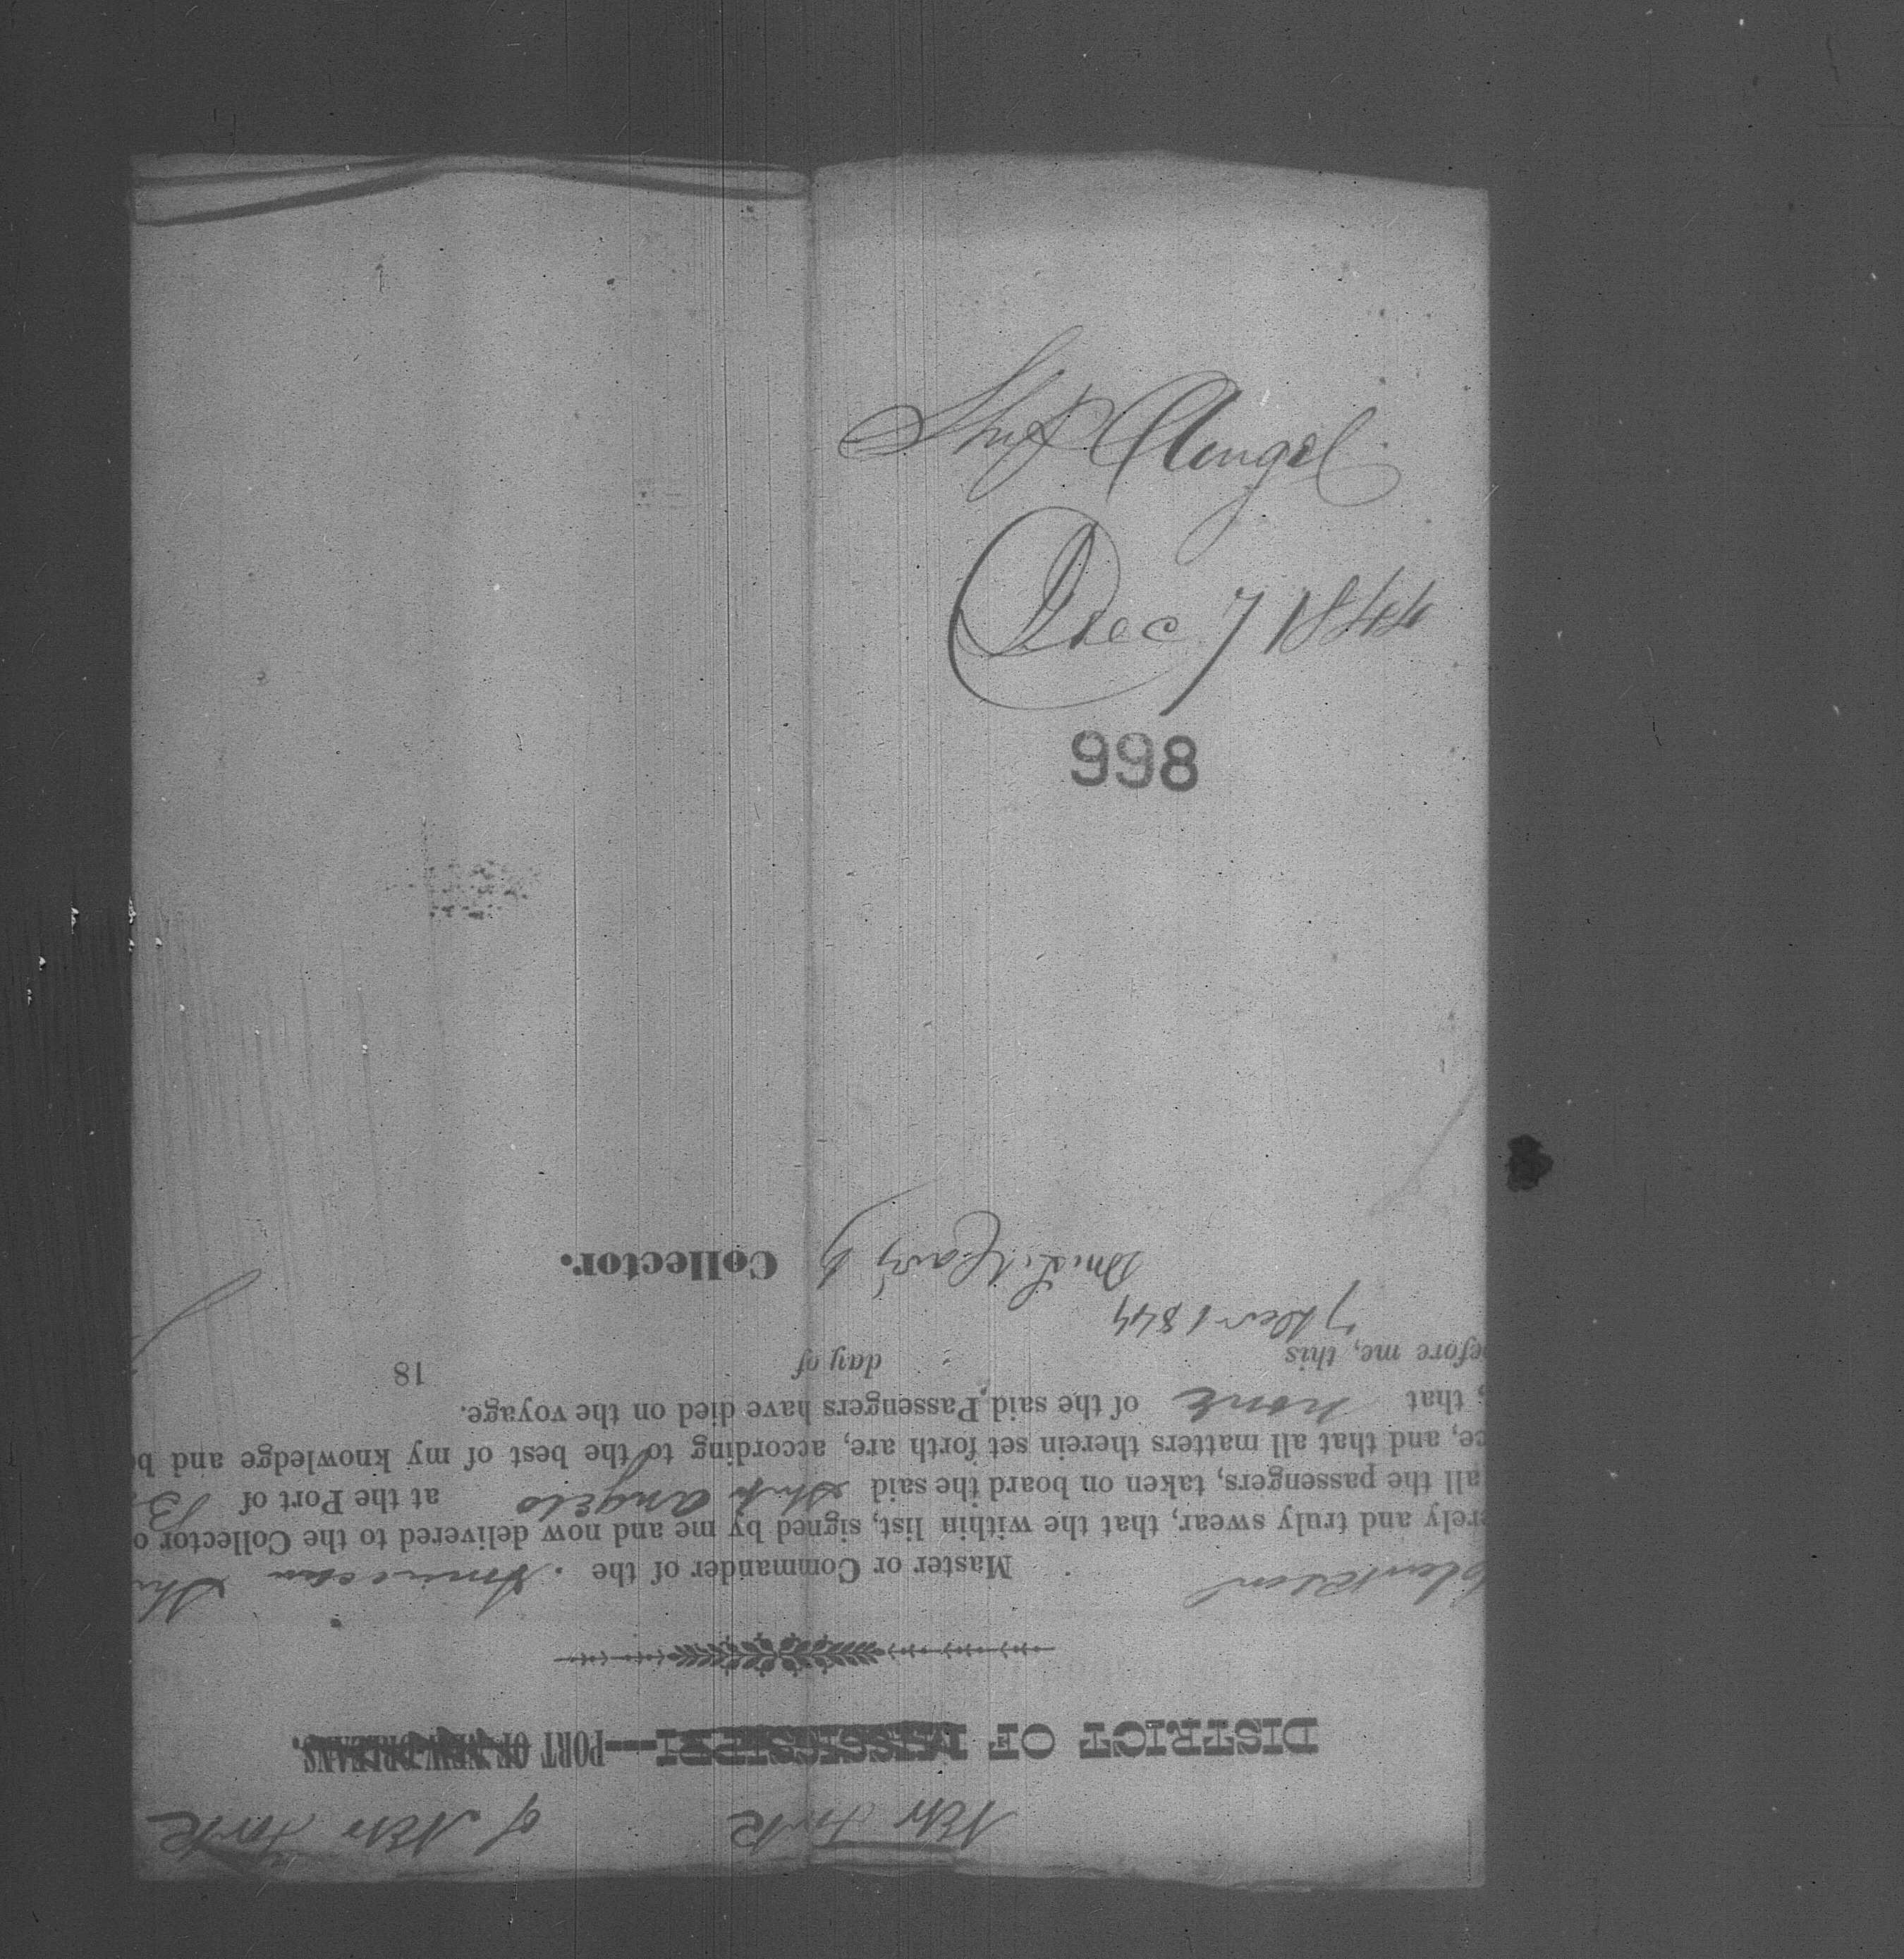 Ship Angel
Dec 7 1844
998
New York of New York
DISTRICT OF MISSISSIPPI—PORT OF NEW-ORLEANS.
Master or Commander of the American Shi
erely and truly swear, that the within list, signed by me and now delivered to the Collector o
all the passengers, taken on board the said Ship Angelo at the Port of B
ce, and that all matters therein set forth are, according to the best of my knowledge and be
; that none of the said Passengers have died on the voyage.
efore me, this day of 18
7 Dec 1844
Collector.